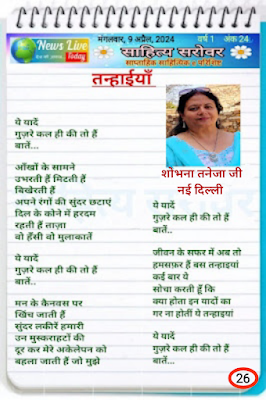 News Live
Today
मंगलवार, 9 अप्रैल, 2024
वर्ष 1 अंक 24
साहित्य सरोवर
साप्ताहिक साहित्यिक ई परिशिष्ट
तन्हाईयाँ
ये यादें
गुज़रे कल ही की तो हैं
बातें...
आँखों के सामने
उभरती हैं मिटती हैं
बिखेरती हैं
अपने रंगों की सुंदर छटाएं
दिल के कोने में हरदम
रहती हैं ताज़ा
वो हँसी वो मुलाकातें
ये यादें
गुज़रे कल ही की तो हैं
बातें...
मन के कैनवस पर
खिंच जाती हैं
सुंदर लकीरें हमारी
उन मुस्कराहटों की
दूर कर मेरे अकेलेपन को
बहला जाती हैं जो मुझे
शोभना तनेजा जी
नई दिल्ली
ये यादें
गुज़रे कल ही की तो हैं
बातें...
जीवन के सफर में अब तो
हमसफ़र हैं बस तन्हाइयां
कई बार ये
सोचा करती हूँ कि
क्या होता इन यादों का
गर ना होतीं ये तन्हाइयां
ये यादें
गुज़रे कल ही की तो हैं
बातें...
26